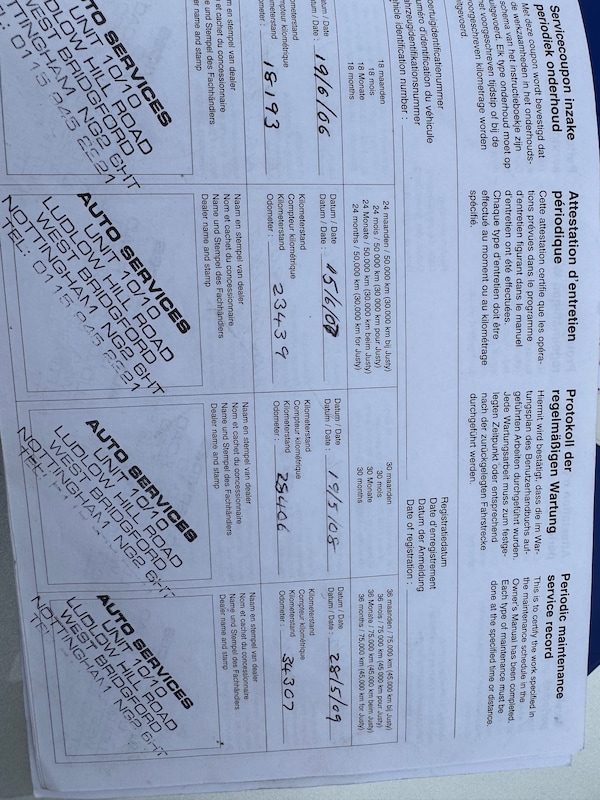 Servicecoupon inzake
periodiek onderhoud
Met deze coupon wordt bevestigd dat
de werkzaamheden in het onderhouds-
schema van het instructieboekje zijn
uitgevoerd. Elk type onderhoud moet op
het voorgeschreven tijdstip of bij de
voorgeschreven kilometrage worden
Attestation d'entretien
périodique
Cette attestation certifie que les opéra-
tions prévues dans le programme
d'entretien figurant dans le manuel
d'entretien ont été effectuées.
Chaque type d'entretien doit être
effectué au moment ou au kilométrage
spécifié.
Protokoll der
regelmäßigen Wartung
Hiermit wird bestätigt, dass die im War-
tungsplan des Benutzerhandbuchs auf-
geführten Arbeiten durchgeführt wurden.
Jede Wartungsarbeit muss zum festge-
legten Zeitpunkt oder entsprechend
nach der zurückgelegten Fahrstrecke
durchgeführt werden.
Periodic maintenance
service record
This is to certify the work specified in
the maintenance schedule in the
Owner's Manual has been completed.
Each type of maintenance must be
done at the specified time or distance.
d'identification du véhicule
identification number :
Registratiedatum
Date d'enregistrement
Datum der Anmeldung
Date of registration :
18 maanden
18 mois
18 Monate
18 months
Datum / Date : 19/6/06
Compteur kilométrique
18193
Nom et cachet du concessionnaire
Name und Stempel des Fachhändlers
AUTO SERVICES
UNIT 10/10
LUDLOW HILL ROAD
WEST BRIDGFORD
NOTTINGHAM NG2 6HT
0115 945 2221
24 maanden / 50.000 km (30.000 km bij Justy)
24 mois / 50 000 km (30 000 km pour Justy)
24 Monate / 50.000 km (30.000 km beim Justy)
24 months / 50,000 km (30,000 km for Justy)
Datum / Date
Datum / Date : 15/6/07
Kilometerstand
Compteur kilométrique
Kilometerstand
Odometer : 23439
Naam en stempel van dealer
Nom et cachet du concessionnaire
Name und Stempel des Fachhändlers
Dealer name and stamp
AUTO SERVICES
UNIT 10/10
LUDLOW HILL ROAD
WEST BRIDGFORD
NOTTINGHAM NG2 6HT
0115 945 2221
30 maanden
30 mois
30 Monate
30 months
Datum / Date
Datum / Date : 19/5/08
Kilometerstand
Compteur kilométrique
Kilometerstand
Odometer : 28406
Naam en stempel van dealer
Nom et cachet du concessionnaire
Name und Stempel des Fachhändlers
Dealer name and stamp
AUTO SERVICES
UNIT 10/10
LUDLOW HILL ROAD
WEST BRIDGFORD
NOTTINGHAM NG2 6HT
36 maanden / 75.000 km (45.000 km bij Justy)
36 mois / 75 000 km (45 000 km pour Justy)
36 Monate / 75.000 km (45.000 km beim Justy)
36 months / 75,000 km (45,000 km for Justy)
Datum / Date
Datum / Date : 28/5/09
Kilometerstand
Compteur kilométrique
Kilometerstand
Odometer : 34307
Naam en stempel van dealer
Nom et cachet du concessionnaire
Name und Stempel des Fachhändlers
Dealer name and stamp
AUTO SERVICES
UNIT 10/10
LUDLOW HILL ROAD
WEST BRIDGFORD
NOTTINGHAM NG2 6HT